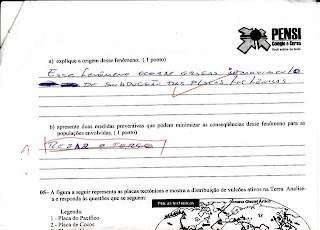 PENSI
Colégio e Curso
a) explique a origem desse fenômeno; ( 1 ponto)
ESSE FENÔMENO OCORRE GRAÇAS
DE SUBDUCÇÃO DAS PLACAS TECTÔNICAS
b) apresente duas medidas preventivas que podem minimizar as conseqüências desse fenômeno para as
populações envolvidas. ( 1 ponto)
REZAR O TERÇO
05- A figura a seguir representa as placas tectônicas e mostra a distribuição de vulcões ativos na Terra. Analise-
a e responda às questões que se seguem:
Legenda:
1 - Placa do Pacífico
2 - Placa de Cocos
Placas tectônicas
Oceano Glacial Ártico
12